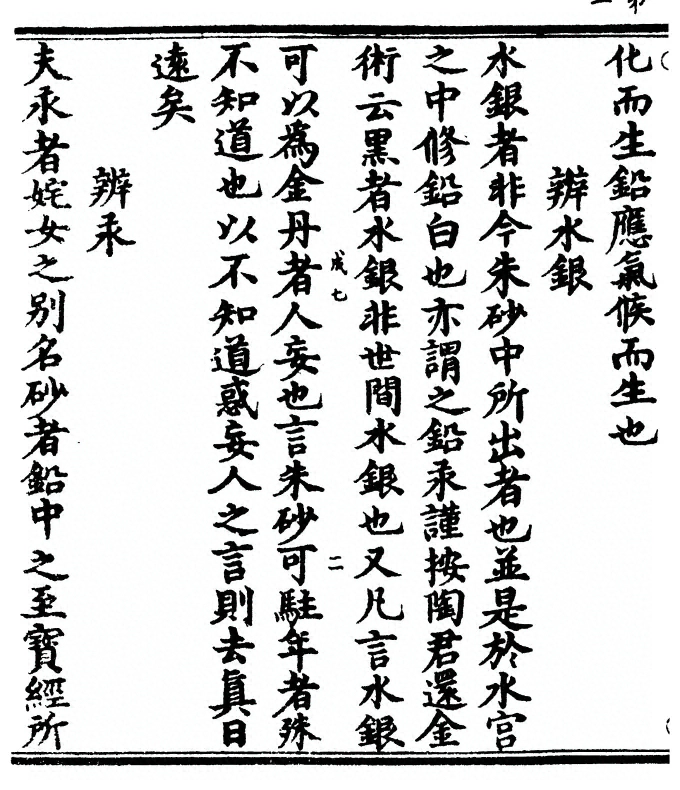 化而生鉛應氣候而生也
辨水銀
水銀者非今朱砂中所出者也並是於水宮
之中修鉛白也亦謂之鉛汞謹按陶君還金
術云黑者水銀非世間水銀也又凡言水銀
成七
二
可以為金丹者人妄也言朱砂可駐年者殊
不知道也以不知道惑妄人之言則去眞日
遠矣
辨汞
夫汞者姹女之别名砂者鉛中之至寳經所